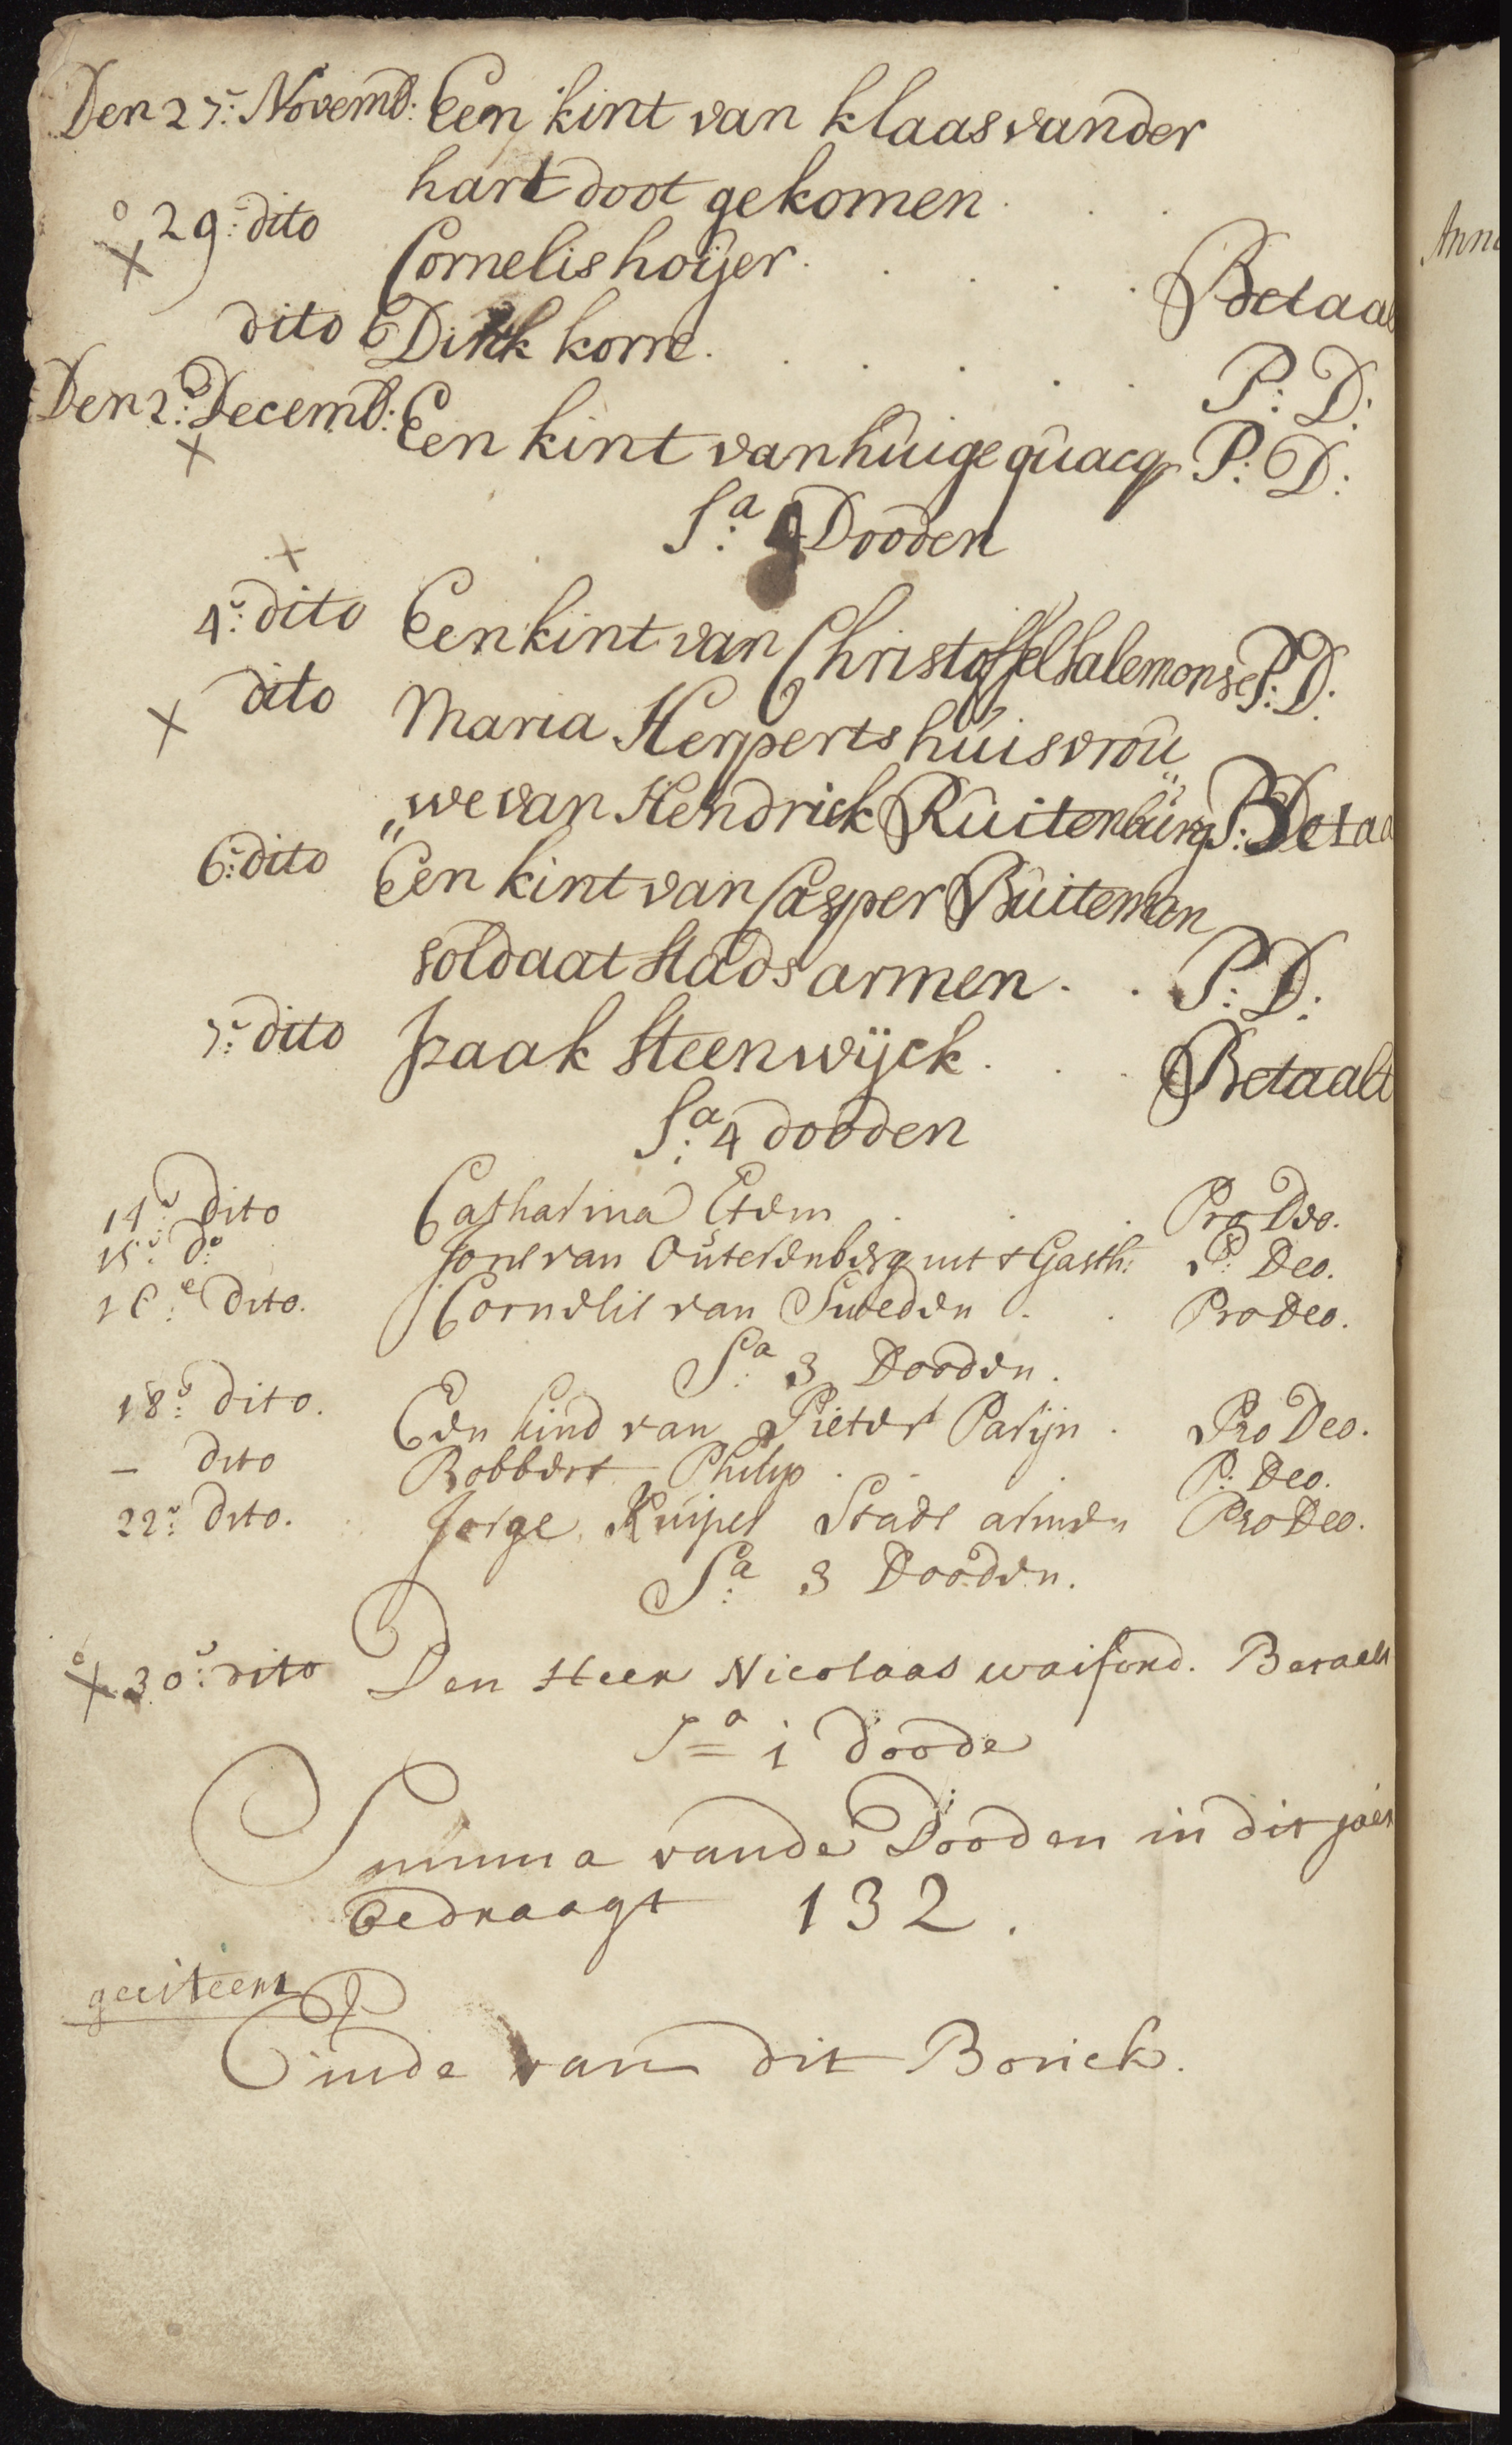 Den 27: Novemb: Een kint van klaas vander
hart doot gekomen . . .
29: dito Cornelis hoijer . . . . . Betaal
dito Dirk korre . . . . . P: D:
Den 2: Decemb: Een kint van huige quacq P: D:
Sa: 4 Dooden
4: dito Een kint van Christoffel Salemonse P: D:
dito Maria Herperts huisvrou„
„we van Hendrick Ruitenburg Betaa
6: dito Een kint van Casper Buiteman
soldaat Stads armen . . P: D:
7: dito Izaak Steenwijck . . . Betaalt
Sa: 4 dooden
14: dito Catharina . . . Pro Deo.
15: do van Outerenberg uit t Gasth: P: Deo.
16:e dito. Cornelis van Sweeden . . Pro Deo.
Sa: 3 Dooden.
18: dito. Een kind van Pieter Parijn . Pro Deo.
– dito Robbert Philip . . . P: Deo.
22: dito. Jorge Kuiper Stads armen Pro Deo.
Sa: 3 Dooden.
30: dito Den Heer Nicolaas . Betaelt
Sa 1 doode
Summa vande Dooden in dit jaer
bedraagt 132.
Einde van dit Boeick.
Anno